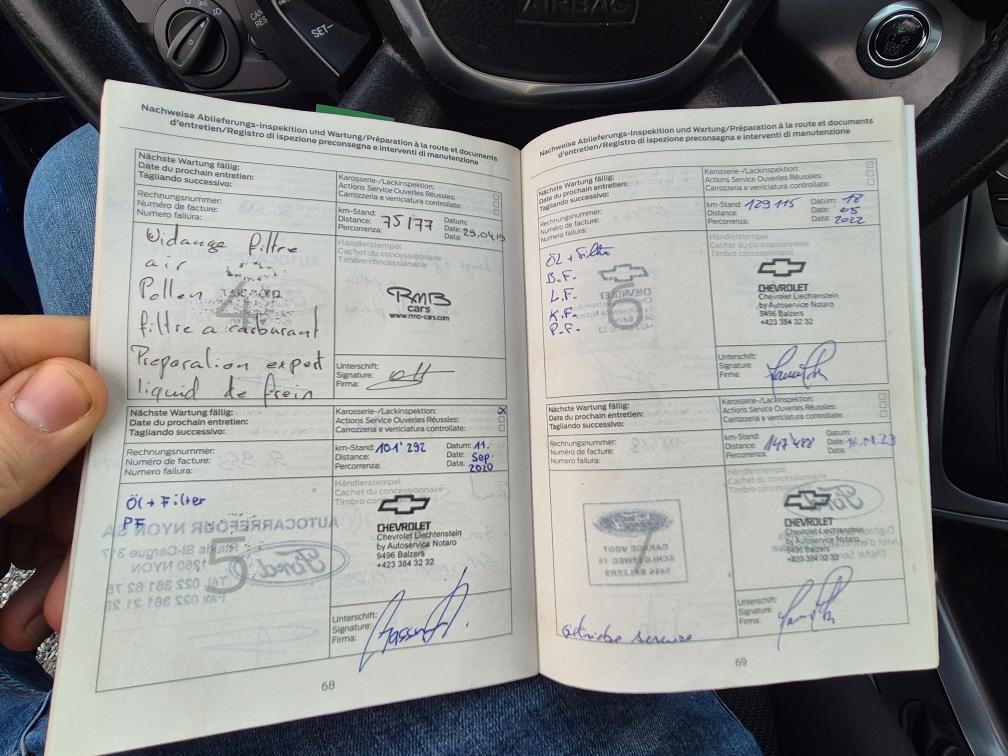 AIRBAC
CAN
RES
SET-
ENGINE
START
STOP
Nachweise Ablieferungs-Inspekition und Wartung/Préparation à la route et documents
d'entretien/Registro di ispezione preconsegna e interventi di manutenzione
Nächste Wartung fällig:
Date du prochain entretien:
Tagliando successivo:
Karosserie-/Lackinspektion:
Actions Service Ouvertes Réussles:
Carrozzeria e verriciatura controllate:
Rechnungsnummer:
Numéro de facture:
Numero failura:
km-Stand:
Distance:
Percorrenza:
75177
Datum:
Date:
Data:
29.04.19
Vidange filtre
air
Pollen
filtre a carburant
Preparation expert
liquid de frein
4
Händlerstempel
Cachet du concessionnaire
Timbro concessionario
RMB
cars
www.rmb-cars.com
Unterschift:
Signature:
Firma:
Nächste Wartung fällig:
Date du prochain entretien:
Tagliando successivo:
Karosserie-/Lackinspektion:
Actions Service Ouvertes Réussles:
Carrozzeria e verriciatura controllate:
X
Rechnungsnummer:
Numéro de facture:
Numero failura:
km-Stand:
Distance:
Percorrenza:
101'292
Datum:
Date:
Data:
11.
Sep.
2020
Öl + Filter
PF
5
AUTOCARREFOUR NYON SA
Rte de St-Cergue
1260 NYON
Tél. 022 361 62
Fax 022 361 21
Ford
Händlerstempel
Cachet du concessionnaire
Timbro
CHEVROLET
Chevrolet Liechtenstein
by Autoservice Notaro
9496 Balzers
+423 384 32 32
Unterschift:
Signature:
Firma:
68
Nachweise Ablieferungs-Inspekition und Wartung/Préparation à la route et documents
d'entretien/Registro di ispezione preconsegna e interventi di manutenzione
Nächste Wartung fällig:
Date du prochain entretien:
Tagliando successivo:
Karosserie-/Lackinspektion:
Actions Service Ouvertes Réussles:
Carrozzeria e verriciatura controllate:
Rechnungsnummer:
Numéro de facture:
Numero failura:
km-Stand:
Distance:
Percorrenza:
129 115
Datum:
Date:
Data:
18
05
2022
Öl + Filter
B.F.
L.F.
K.F.
P.F.
6
CHEVROLET
Händlerstempel
Cachet du concessionnaire
Timbro concessionario
CHEVROLET
Chevrolet Liechtenstein
by Autoservice Notaro
9496 Balzers
+423 384 32 32
Unterschift:
Signature:
Firma:
Nächste Wartung fällig:
Date du prochain entretien:
Tagliando successivo:
Karosserie-/Lackinspektion:
Actions Service Ouvertes Réussles:
Carrozzeria e verriciatura controllate:
Rechnungsnummer:
Numéro de facture:
Numero failura:
km-Stand:
Distance:
Percorrenza:
147'488
Datum:
Date:
Data:
16.01.23
7
GARAGE VOGT
SCHLOSSWEG 16
9496 BALZERS
Händlerstempel
Cachet du concessionnaire
Timbro
Ford
CHEVROLET
Chevrolet Liechtenstein
by Autoservice Notaro
9496 Balzers
+423 384 32 32
Getriebe service
Unterschift:
Signature:
Firma:
69